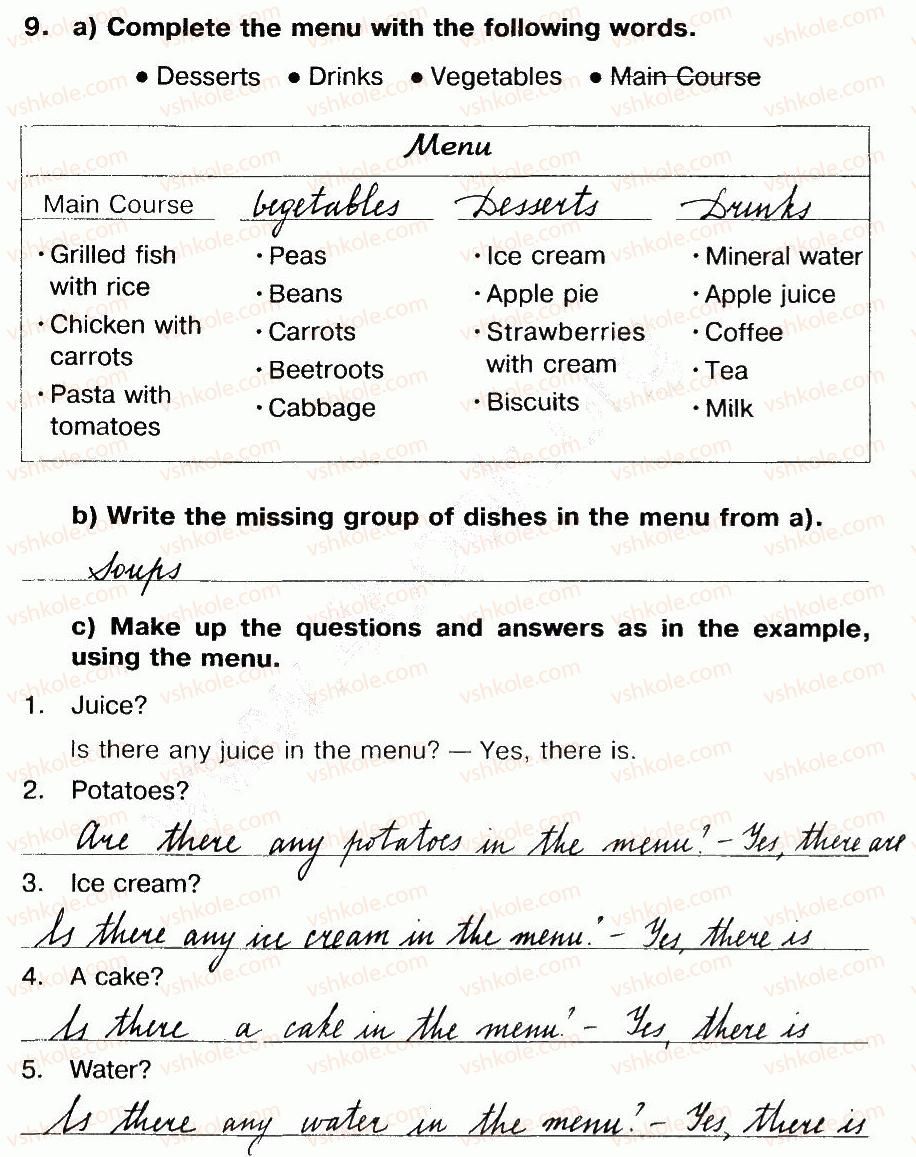 9. a) Complete the menu with the following words.
• Desserts • Drinks • Vegetables • Main Course
Menu
Main Course Vegetables Desserts Drinks
• Grilled fish with rice
• Chicken with carrots
• Pasta with tomatoes
• Peas
• Beans
• Carrots
• Beetroots
• Cabbage
• Ice cream
• Apple pie
• Strawberries with cream
• Biscuits
• Mineral water
• Apple juice
• Coffee
• Tea
• Milk
b) Write the missing group of dishes in the menu from a).
Soups
c) Make up the questions and answers as in the example,
using the menu.
1. Juice?
Is there any juice in the menu? — Yes, there is.
2. Potatoes?
Are there any potatoes in the menu? – Yes, there are
3. Ice cream?
Is there any ice cream in the menu? – Yes, there is
4. A cake?
Is there a cake in the menu? – Yes, there is
5. Water?
Is there any water in the menu? – Yes, there is
vshkole.com